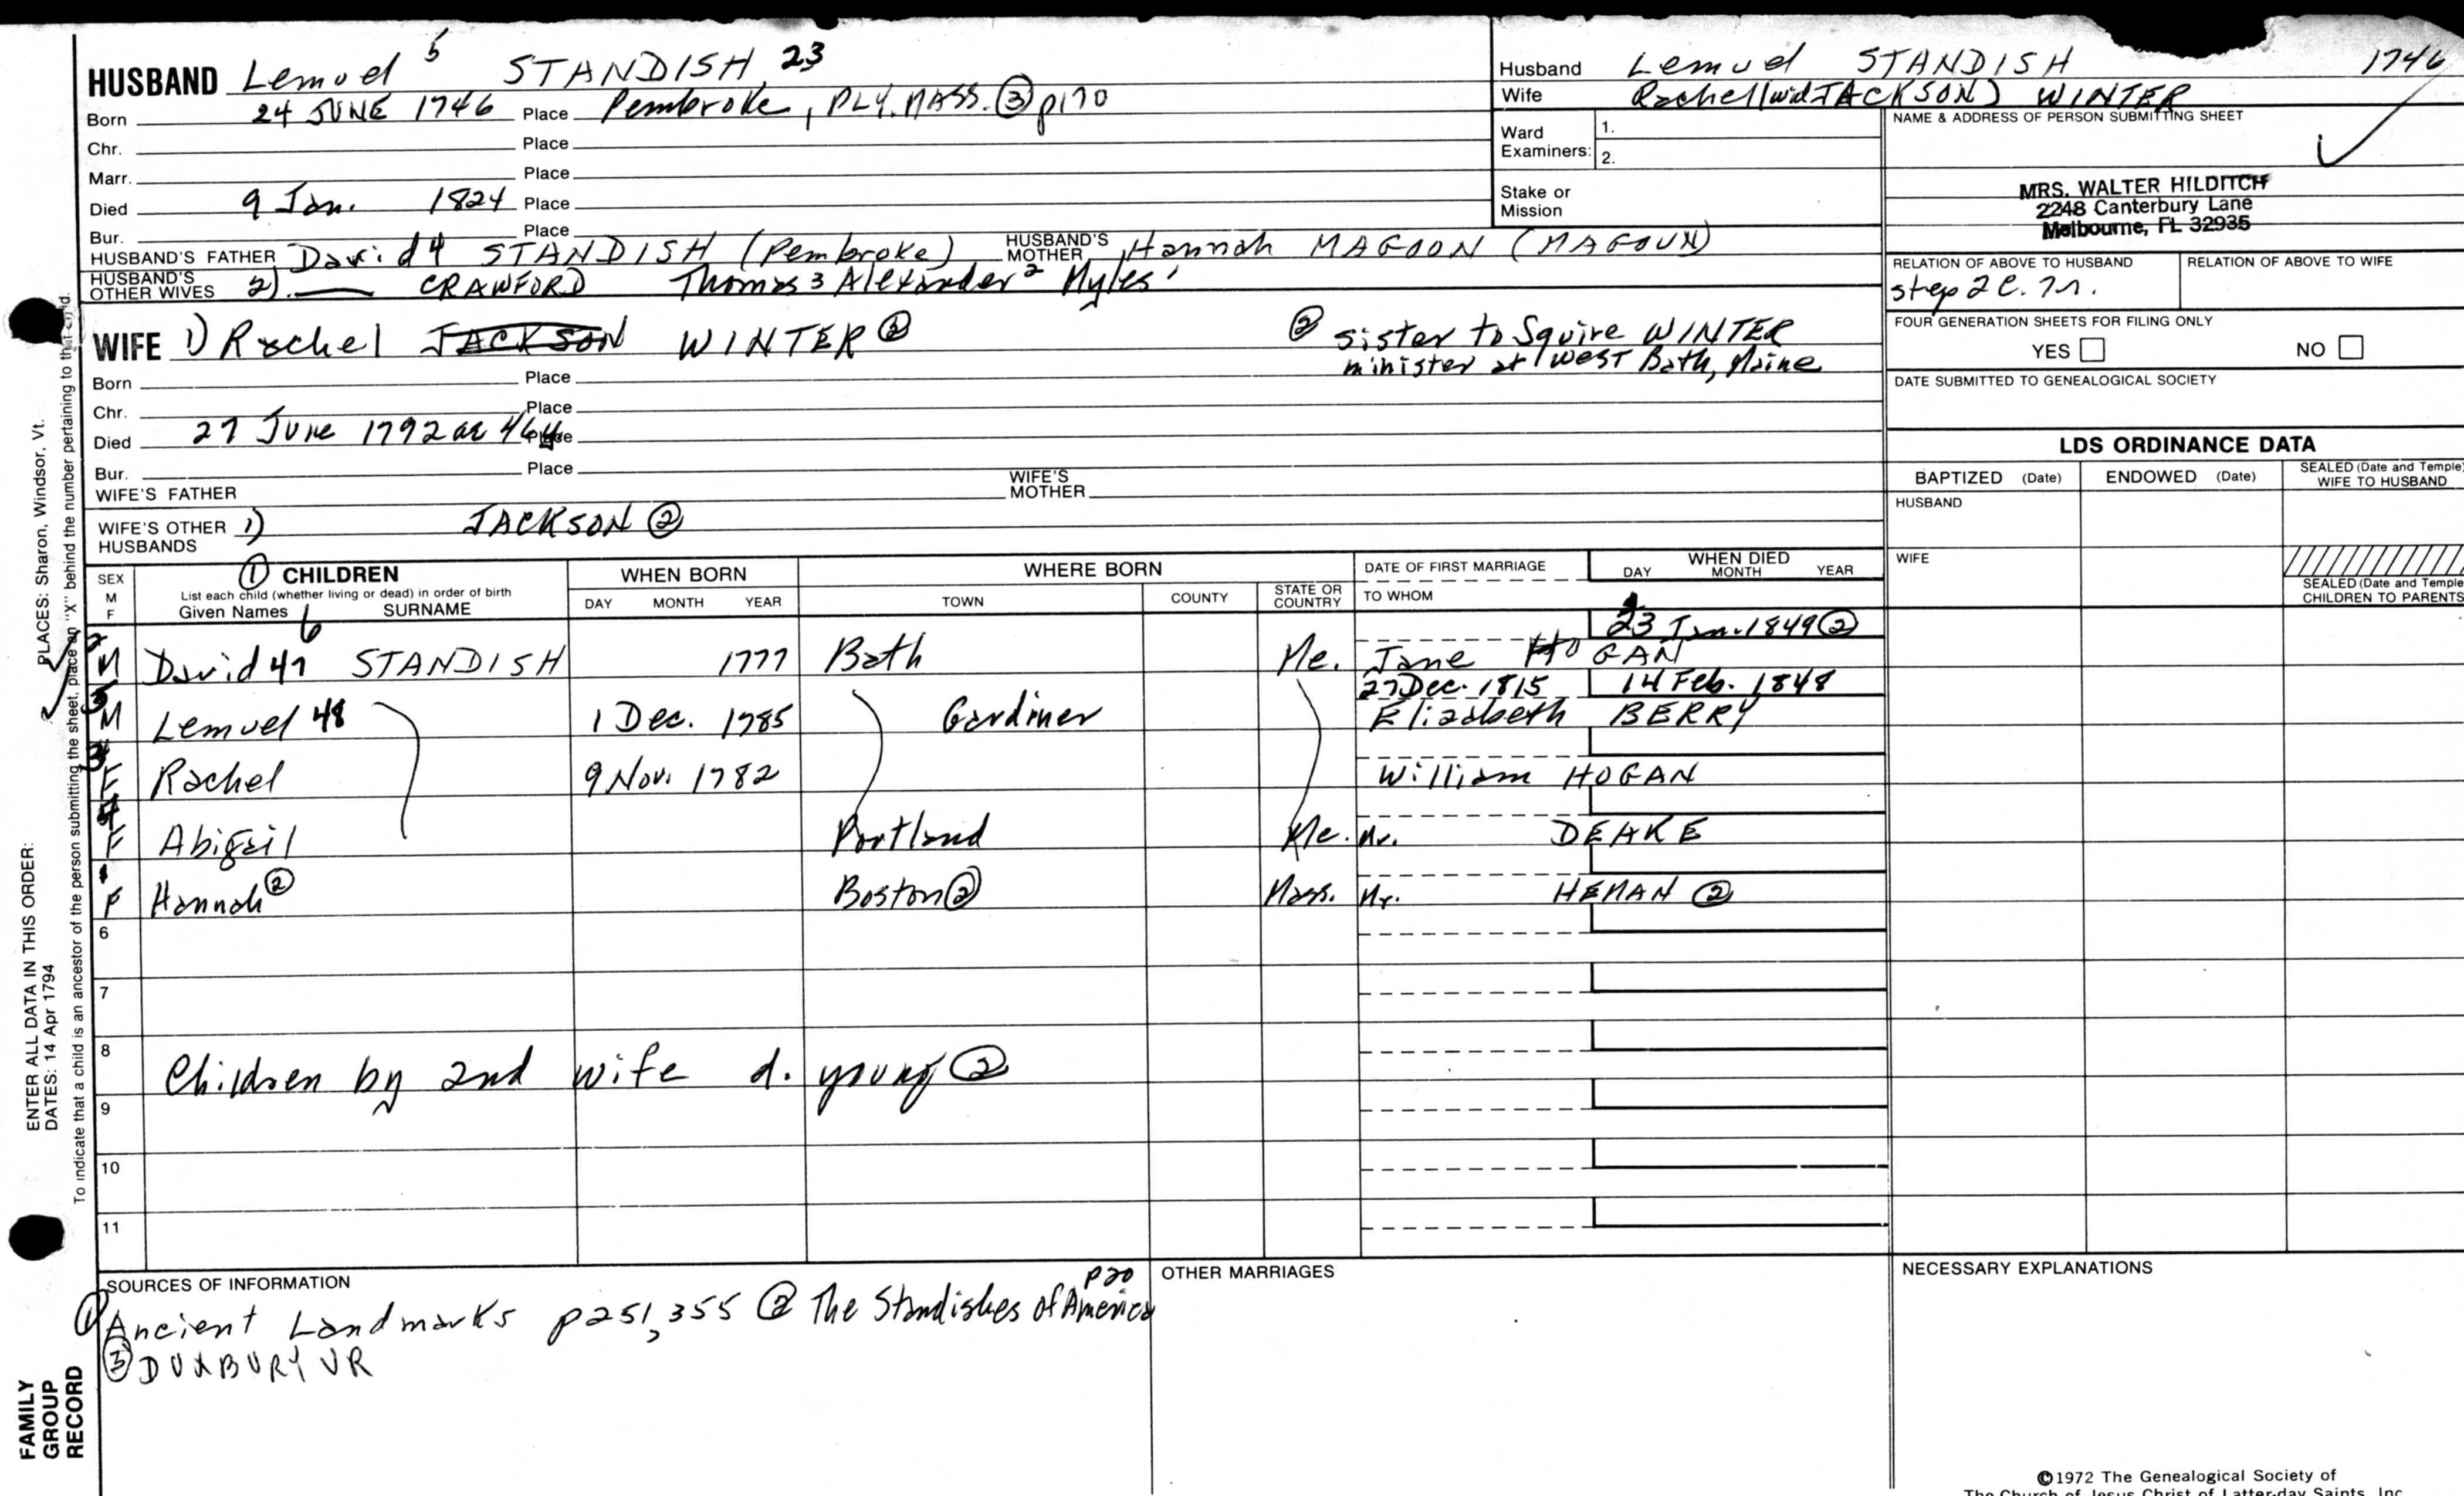 HUSBAND Lemuel 5 STANDISH 23
Born 24 JUNE 1746 Place Pembroke, PLY. MASS. ③ p170
Chr. Place
Marr. Place
Died 9 Jan. 1824 Place
Bur. Place
HUSBAND'S FATHER David 4 STANDISH (Pembroke) HUSBAND'S MOTHER Hannah MAGOON (MAGOUN)
HUSBAND'S OTHER WIVES 2) CRAWFORD Thomas 3 Alexander 2 Myles 1
Husband Lemuel STANDISH 1746
Wife Rachel (wid JACKSON) WINTER
Ward Examiners: 1.
2.
Stake or Mission
NAME & ADDRESS OF PERSON SUBMITTING SHEET
MRS. WALTER HILDITCH
2248 Canterbury Lane
Melbourne, FL 32935
RELATION OF ABOVE TO HUSBAND RELATION OF ABOVE TO WIFE
step 2c.
FOUR GENERATION SHEETS FOR FILING ONLY
YES NO
DATE SUBMITTED TO GENEALOGICAL SOCIETY
WIFE 1) Rachel JACKSON WINTER ②
② sister to Squire WINTER
minister at West Bath, Maine
Born Place
Chr. Place
Died 27 June 1792 ae 46 Place
Bur. Place
WIFE'S FATHER WIFE'S MOTHER
WIFE'S OTHER HUSBANDS 1) JACKSON ②
LDS ORDINANCE DATA
BAPTIZED (Date) ENDOWED (Date) SEALED (Date and Temple) WIFE TO HUSBAND
HUSBAND
WIFE
SEALED (Date and Temple) CHILDREN TO PARENTS
SEX M F
① CHILDREN
List each child (whether living or dead) in order of birth
Given Names 6 SURNAME
WHEN BORN
DAY MONTH YEAR
WHERE BORN
TOWN COUNTY STATE OR COUNTRY
DATE OF FIRST MARRIAGE
TO WHOM
WHEN DIED
DAY MONTH YEAR
23 Jan. 1849 ②
2 M David 47 STANDISH 1777 Bath Me. Jane HOGAN
27 Dec. 1815 14 Feb. 1848
5 M Lemuel 48 1 Dec. 1785 Gardiner Elizabeth BERRY
3 F Rachel 9 Nov. 1782 William HOGAN
4 F Abigail Portland Me. Mr. DEAKE
1 F Hannah ② Boston ② Mass. Mr. HEMAN ②
6
7
8
Children by 2nd wife d. young ②
9
10
11
SOURCES OF INFORMATION
① Ancient Landmarks p251, 355 ② The Standishes of America p20
③ DUXBURY VR
OTHER MARRIAGES
NECESSARY EXPLANATIONS
©1972 The Genealogical Society of
The Church of Jesus Christ of Latter-day Saints, Inc.
PLACES: Sharon, Windsor, Vt.
To indicate that a child is an ancestor of the person submitting the sheet, place an "X" behind the number pertaining to that child.
ENTER ALL DATA IN THIS ORDER:
DATES: 14 Apr 1794
FAMILY
GROUP
RECORD